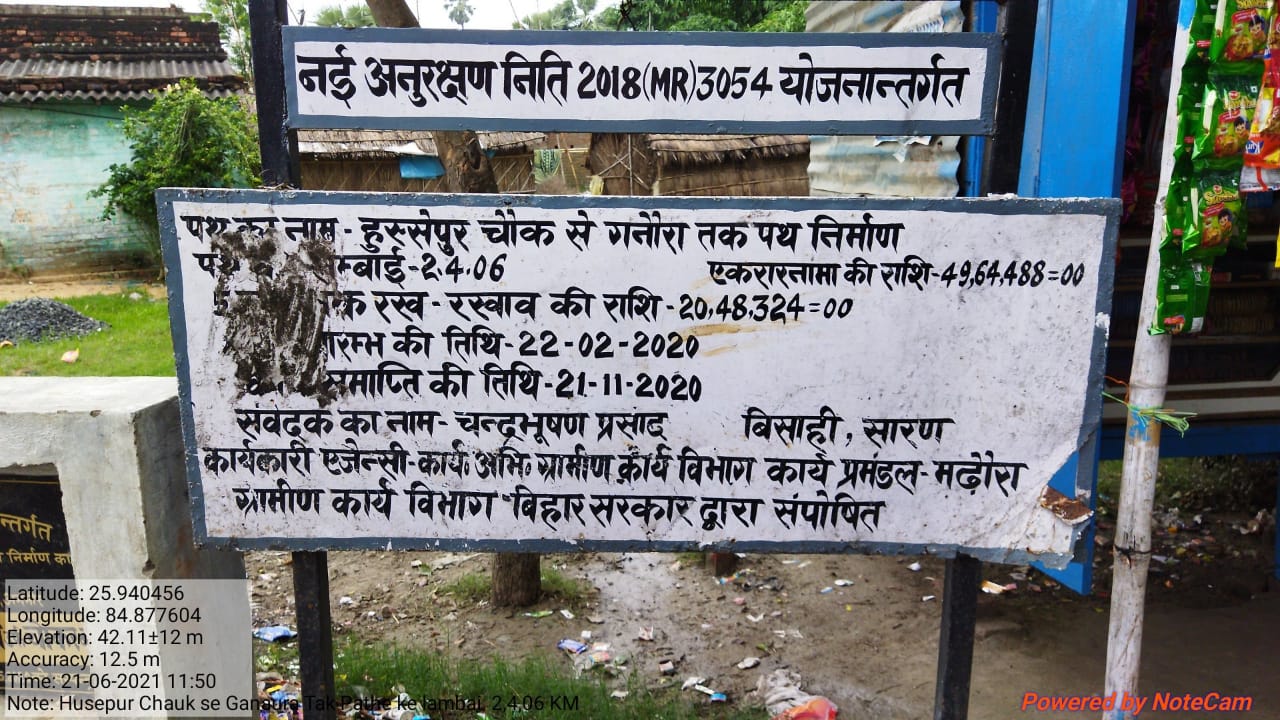 नई अनुरक्षण निति 2018(MR)3054 योजनान्तर्गत
पथ का नाम - हुस्सेपुर चौक से गनौरा तक पथ निर्माण
म्बाई - 2.4.06 एकरारनामा की राशि - 49,64,488=00
रख - रखाव की राशि - 20,48,324=00
रम्भ की तिथि - 22-02-2020
समाप्ति की तिथि - 21-11-2020
संवेदक का नाम - चन्द्रभूषण प्रसाद बिसाही, सारण
कार्यकारी एजेन्सी - कार्य॰ अभि॰ ग्रामीण कार्य विभाग कार्य प्रमंडल - मढ़ौरा
ग्रामीण कार्य विभाग बिहार सरकार द्वारा संपोषित
न्तर्गत
निर्माण
Latitude: 25.940456
Longitude: 84.877604
Elevation: 42.11±12 m
Accuracy: 12.5 m
Time: 21-06-2021 11:50
Note: Husepur Chauk se Ganaura Tak Pathe ke lambai. 2,4,06 KM
Powered by NoteCam